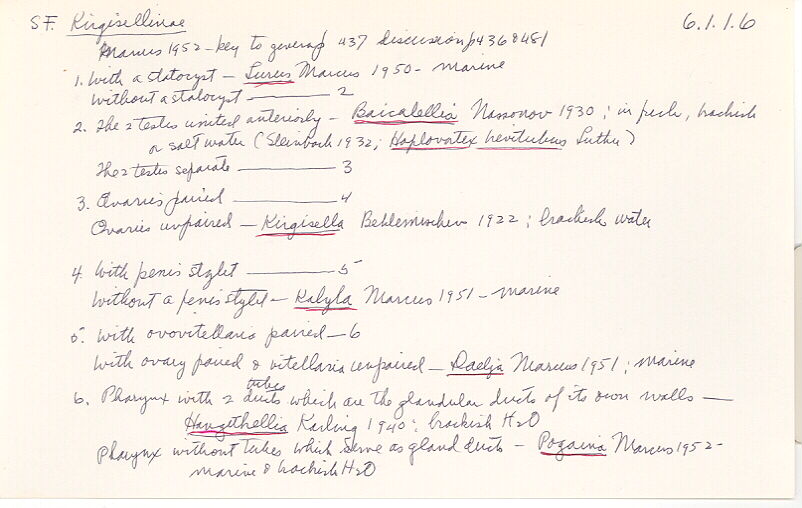 SF. Kirgisellinae 6.1.1.6
Marcus 1952 - key to genera p 437 discussion p 436 & 481
1. With a statocyst - Lurus Marcus 1950 - marine
Without a statocyst ——— 2
2. The 2 testes united anteriorly - Baicalellia Nassonov 1930 ; in fresh, brackish
or salt water (Steinbock 1932; Haplovortex brevitubus Luther)
The 2 testes separate ——— 3
3. Ovaries paired ——— 4
Ovaries unpaired - Kirgisella Beklemischev 1922 ; brackish water
4. With penis stylet ——— 5
Without a penis stylet - Kalyla Marcus 1951 - marine
5. With ovovitellaria paired - 6
With ovary paired & vitellaria unpaired - Daelja Marcus 1951 ; marine
tubes
6. Pharynx with 2 ducts which are the glandular ducts of its own walls —
Hangethellia Karling 1940 ; brackish H2O
Pharynx without tubes which serve as gland ducts - Pogaina Marcus 1952 -
marine & brackish H2O